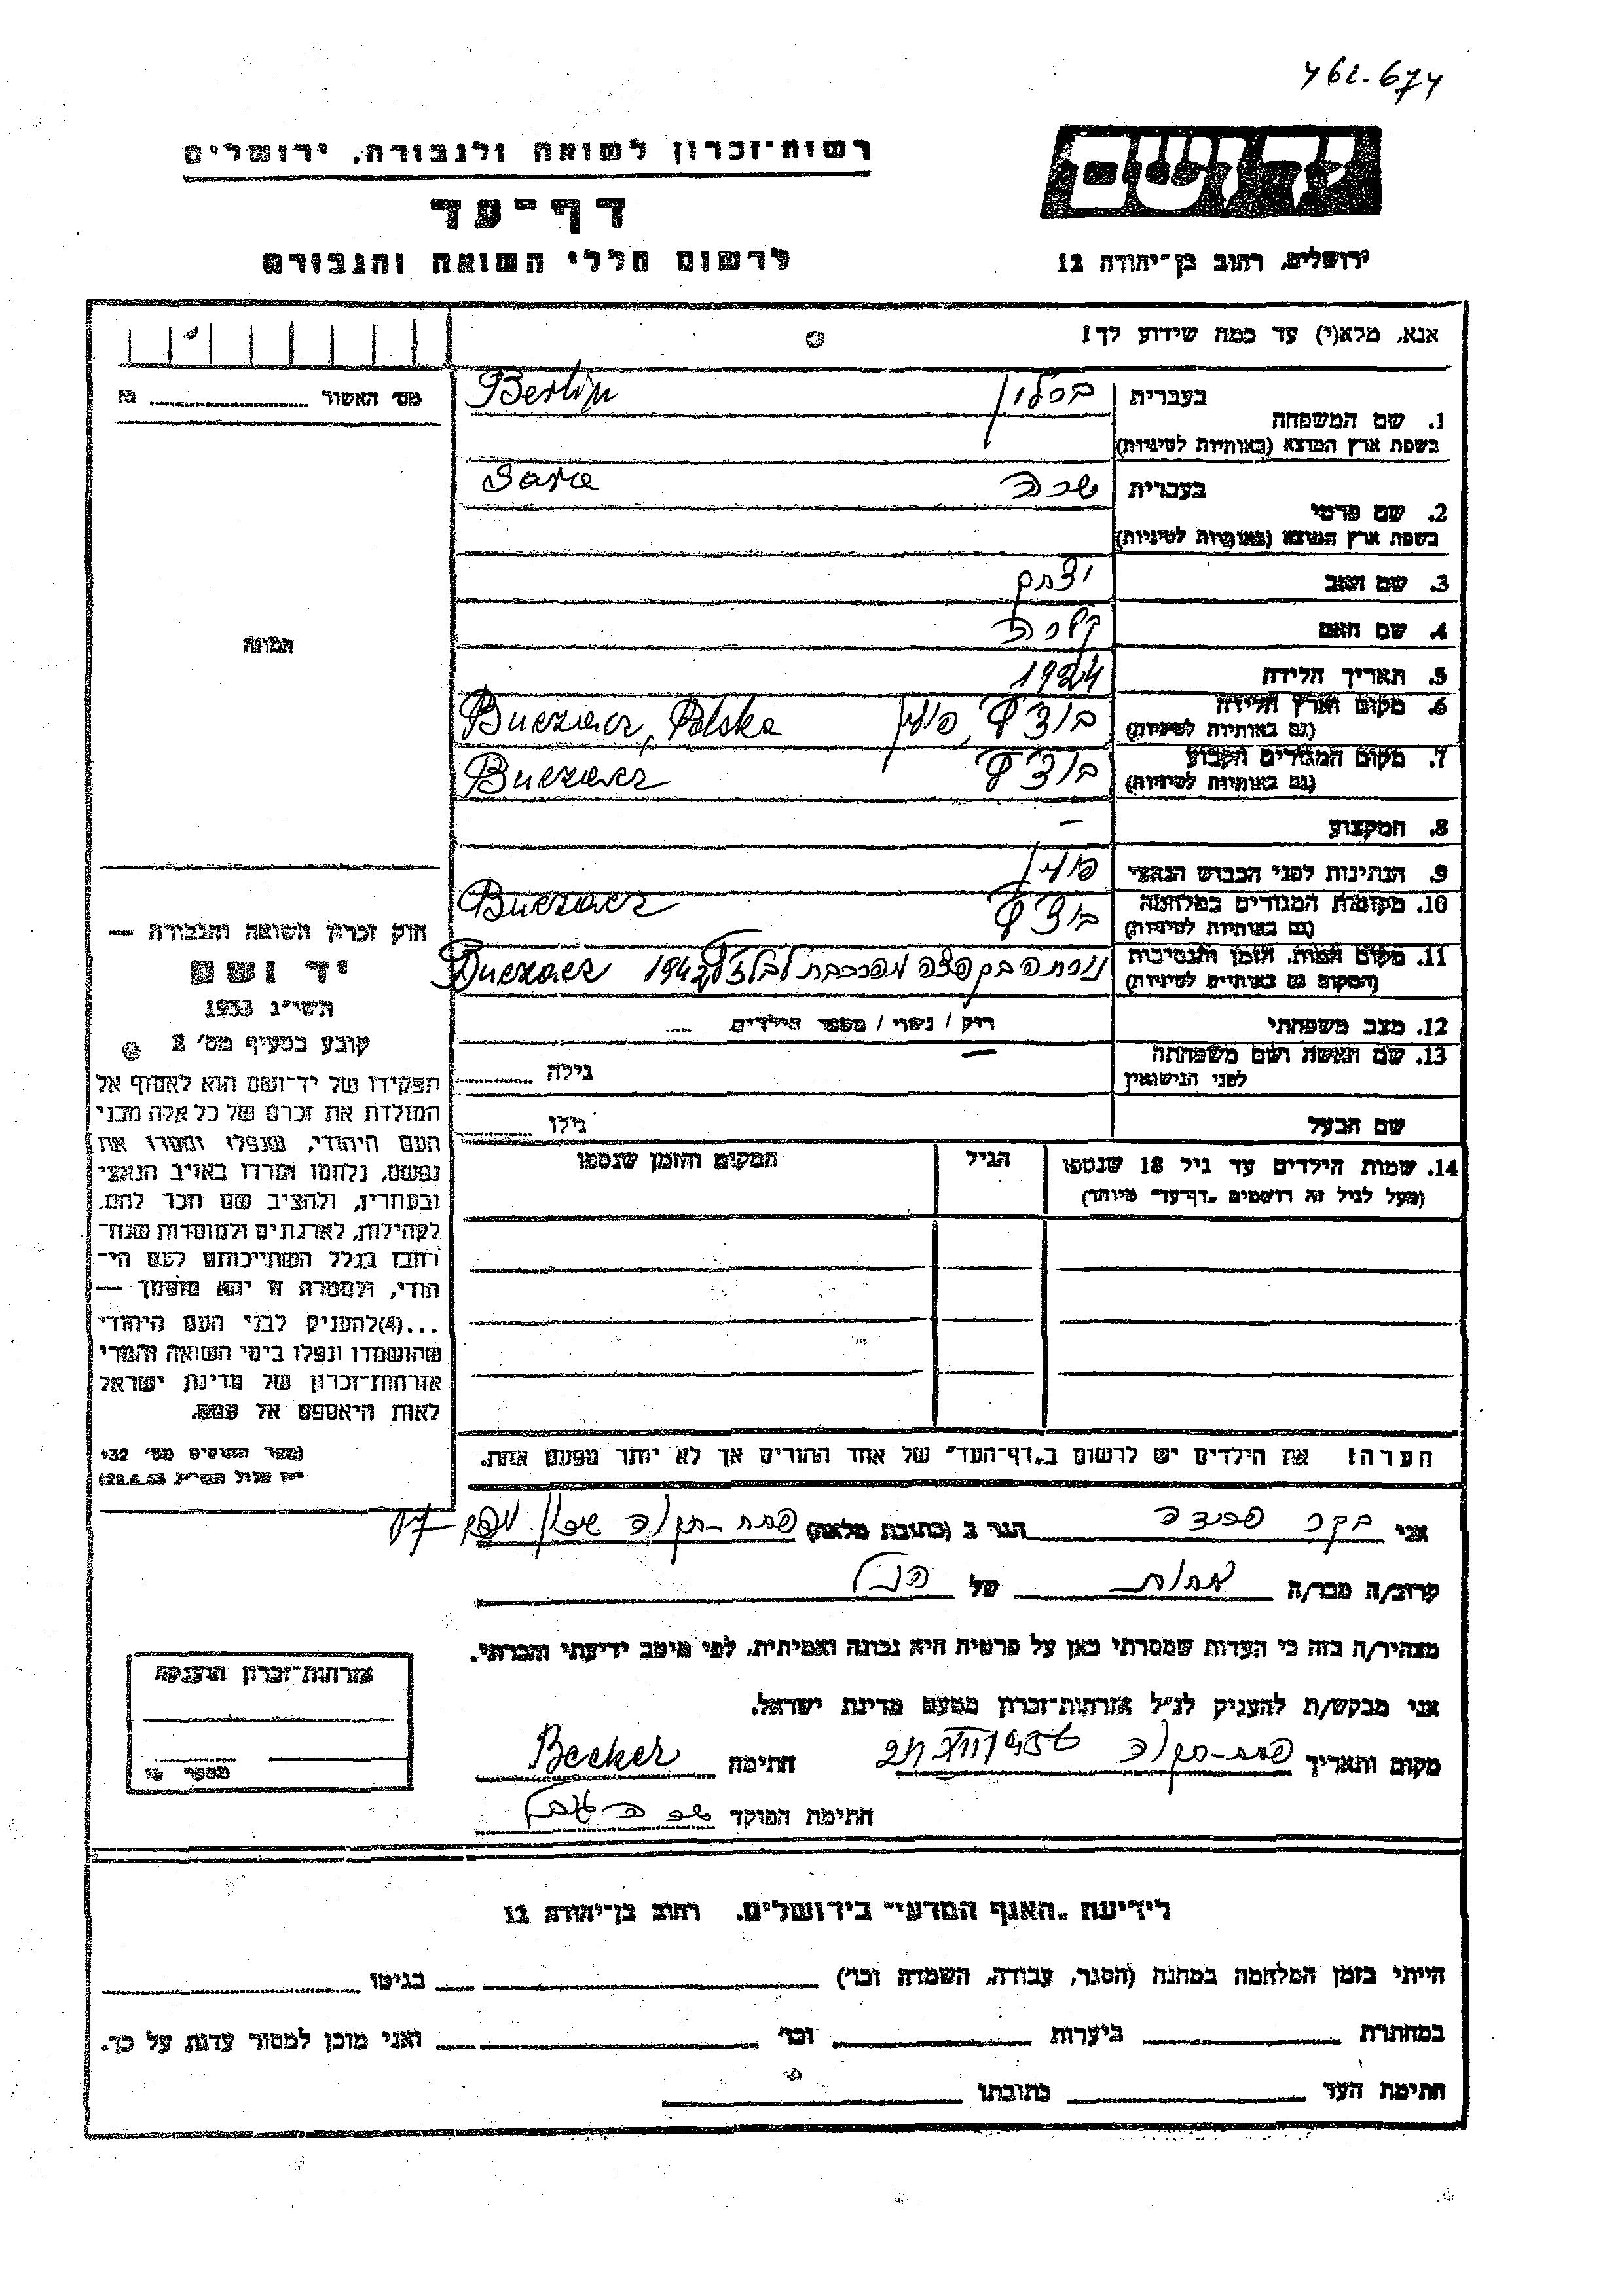 462.674
רשות-זכרון לשואה ולגבורה, ירושלים
יד ושם
דף-עד
לרשום חללי השואה והגבורה
ירושלים, רחוב בן-יהודה 12
אנא, מלא(י) עד כמה שידוע לך!
מס' האשור № 
1. שם המשפחה
בעברית ברלין Berlin
בשפת ארץ המוצא (באותיות לטיניות)
2. שם פרטי
בעברית שרה Sara
בשפת ארץ המוצא (באותיות לטיניות)
3. שם האב יצחק
4. שם האם קלרה
5. תאריך הלידה 1924
6. מקום וארץ הלידה בוצ'ץ', פולין Buczacz, Polska
(גם באותיות לטיניות)
7. מקום המגורים הקבוע בוצ'ץ' Buczacz
(גם באותיות לטיניות)
8. המקצוע –
9. הנתינות לפני הכבוש הנאצי פולין
10. מקומות המגורים במלחמה בוצ'ץ' Buczacz
(גם באותיות לטיניות)
11. מקום המות, הזמן והנסיבות נורתה בקפצה מהרכבת לבלזץ 1942 Buczacz
(המקום גם באותיות לטיניות)
12. מצב משפחתי רוק / נשוי / מספר הילדים
13. שם האשה ושם משפחתה – גילה
לפני הנישואין
שם הבעל גילו
14. שמות הילדים עד גיל 18 שנספו הגיל המקום והזמן שנספו
(מעל לגיל זה רושמים „דף-עד" מיוחד)
תמונה
חוק זכרון השואה והגבורה —
יד ושם
תשי"ג 1953
קובע בסעיף מס' 2
תפקידו של יד-ושם הוא לאסוף אל
המולדת את זכרם של כל אלה מבני
העם היהודי, שנפלו ומסרו את
נפשם, נלחמו ומרדו באויב הנאצי
ובעוזריו, ולהציב שם וזכר להם,
לקהילות, לארגונים ולמוסדות שנח-
רבו בגלל השתייכותם לעם הי-
הודי, ולמטרה זו יהא מוסמך —
...(4)להעניק לבני העם היהודי
שהושמדו ונפלו בימי השואה והמרי
אזרחות-זכרון של מדינת ישראל
לאות היאספם אל עמם.
(ספר החוקים מס' 132
י"ז אלול תשי"ג 28.8.53)
הערה: את הילדים יש לרשום ב„דף-העד" של אחד ההורים אך לא יותר מפעם אחת.
אני בקר הגר ב (כתובת מלאה) פתח-תקוה
קרוב/ה מכר/ה אחות של הנ"ל
מצהיר/ה בזה כי העדות שמסרתי כאן על פרטיה היא נכונה ואמיתית, לפי מיטב ידיעתי והכרתי.
אני מבקש/ת להעניק לנ"ל אזרחות-זכרון מטעם מדינת ישראל.
מקום ותאריך פתח-תקוה חתימה Becker
חתימת הפוקד
אזרחות-זכרון הוענקה
מספר №
לידיעת „האגף המדעי" בירושלים, רחוב בן-יהודה 12
הייתי בזמן המלחמה במחנה (הסגר, עבודה, השמדה וכו') בגיטו
במחתרת ביערות וכו' ואני מוכן למסור עדות על כך.
חתימת העד כתובתו